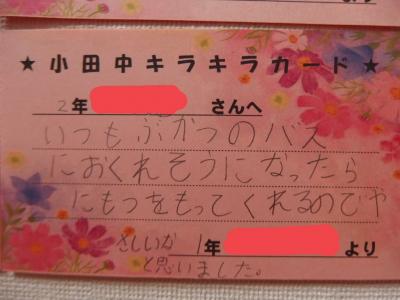 より
★小田中キラキラカード★
2年 さんへ
いつもぶかつのバス
におくれそうになったら
にもつをもってくれるのでや
さしいな 1年 より
と思いました。